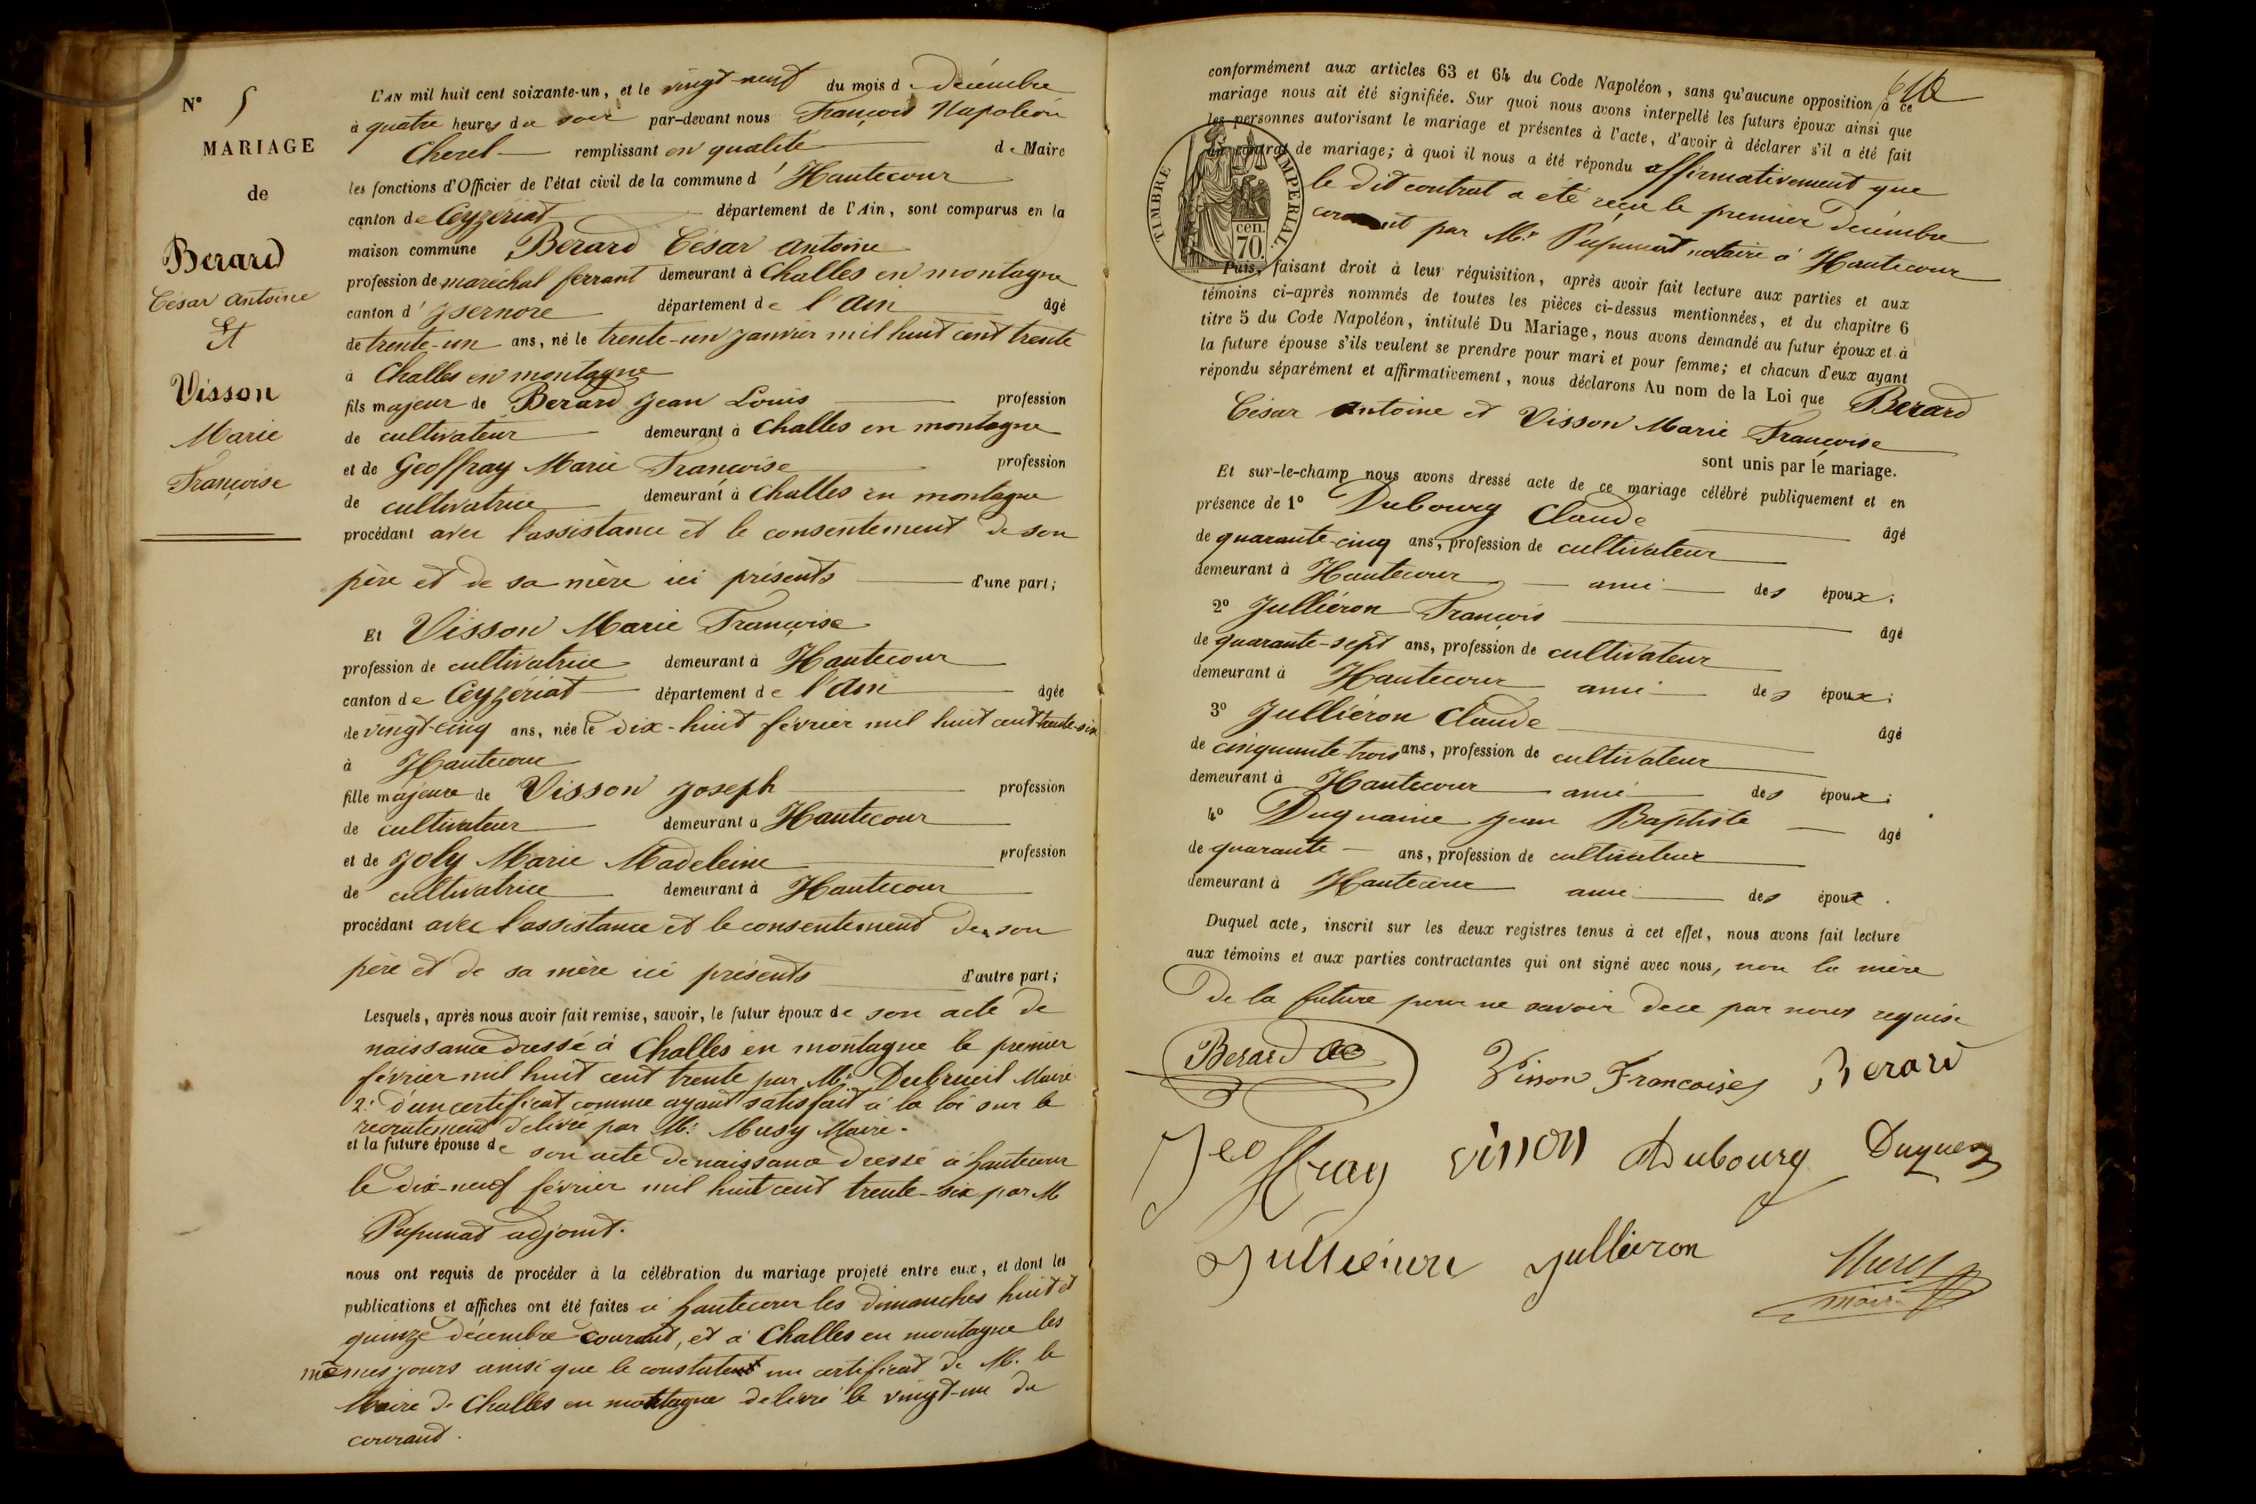 N° 5
MARIAGE
de
Berard
César Antoine
Et
Visson
Marie
Françoise
L'AN mil huit cent soixante-un, et le vingt-neuf du mois de décembre
à quatre heures du soir par-devant nous François Napoléon
Cherel remplissant en qualité de Maire
les fonctions d'Officier de l'état civil de la commune d'Hautecour
canton de Ceyzériat département de l'Ain, sont comparus en la
maison commune Berard César Antoine
profession de maréchal ferrant demeurant à Challes en montagne
canton d'jsernore département de l'Ain âgé
de trente-un ans, né le trente-un janvier mil huit cent trente
à Challes en montagne
fils majeur de Berard Jean Louis profession
de cultivateur demeurant à Challes en montagne
et de Geoffray Marie Françoise profession
de cultivatrice demeurant à Challes en montagne
procédant avec l'assistance et le consentement de son
père et de sa mère ici présents d'une part;
Et Visson Marie Françoise
profession de cultivatrice demeurant à Hautecour
canton de Ceyzériat département de l'Ain âgée
de vingt-cinq ans, née le dix-huit février mil huit cent trente-six
à Hautecour
fille majeure de Visson Joseph profession
de cultivateur demeurant à Hautecour
et de Joly Marie Madeleine profession
de cultivatrice demeurant à Hautecour
procédant avec l'assistance et le consentement de son
père et de sa mère ici présents d'autre part;
Lesquels, après nous avoir fait remise, savoir, le futur époux de son acte de
naissance dressé à Challes en montagne le premier
février mil huit cent trente par Mr Dubrueil Maire
2° d'un certificat comme ayant satisfait à la loi sur le
recrutement délivré par Mr Musy Maire.
et la future épouse de son acte de naissance dressé à hautecour
le dix-neuf février mil huit cent trente-six par M
Pupunat adjoint.
nous ont requis de procéder à la célébration du mariage projeté entre eux, et dont les
publications et affiches ont été faites à hautecour les dimanches huit et
quinze décembre courant, et à Challes en montagne les
mêmes jours ainsi que le constatent un certificat de M. le
Maire de Challes en montagne délivré le vingt-un du
courant.
conformément aux articles 63 et 64 du Code Napoléon, sans qu'aucune opposition à ce
mariage nous ait été signifiée. Sur quoi nous avons interpellé les futurs époux ainsi que
les personnes autorisant le mariage et présentes à l'acte, d'avoir à déclarer s'il a été fait
un contrat de mariage; à quoi il nous a été répondu affirmativement que
le dit contrat a été reçu le premier décembre
courant par Mr Pupunat notaire à Hautecour
TIMBRE IMPÉRIAL
70 cen.
Puis, faisant droit à leur réquisition, après avoir fait lecture aux parties et aux
témoins ci-après nommés de toutes les pièces ci-dessus mentionnées, et du chapitre 6
titre 5 du Code Napoléon, intitulé Du Mariage, nous avons demandé au futur époux et à
la future épouse s'ils veulent se prendre pour mari et pour femme; et chacun d'eux ayant
répondu séparément et affirmativement, nous déclarons Au nom de la Loi que Berard
César Antoine et Visson Marie Françoise
sont unis par le mariage.
Et sur-le-champ nous avons dressé acte de ce mariage célébré publiquement et en
présence de 1° Dubourg Claude âgé
de quarante-cinq ans, profession de cultivateur
demeurant à Hautecour ami des époux;
2° Julliéron François âgé
de quarante-sept ans, profession de cultivateur
demeurant à Hautecour ami des époux;
3° Julliéron Claude âgé
de cinquante-trois ans, profession de cultivateur
demeurant à Hautecour ami des époux;
4° Duquaine Jean Baptiste âgé
de quarante ans, profession de cultivateur
demeurant à Hautecour ami des époux.
Duquel acte, inscrit sur les deux registres tenus à cet effet, nous avons fait lecture
aux témoins et aux parties contractantes qui ont signé avec nous, non la mère
de la future pour ne savoir de ce par nous requise
Berard
Visson Francoise Berard
Jeoffray visson Dubourg
Jullieron
maire